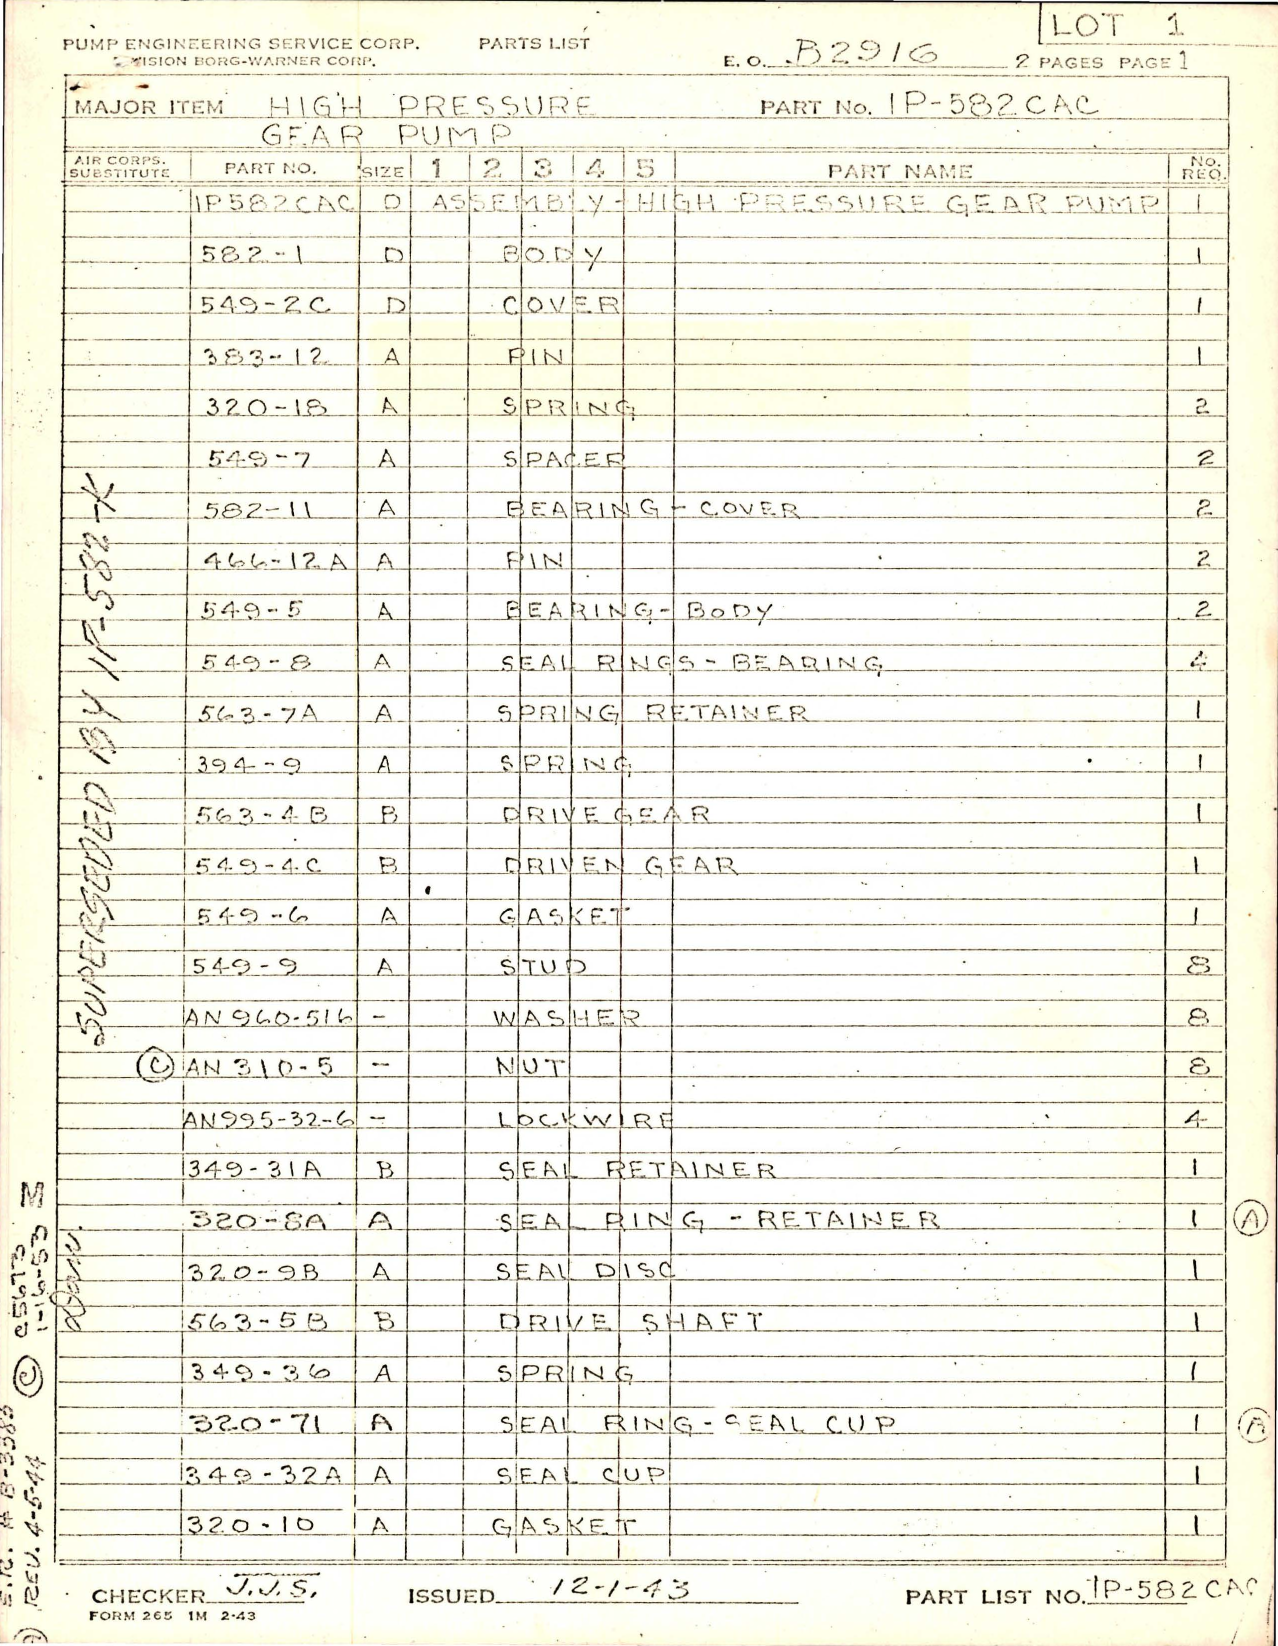 LOT 1
PUMP ENGINEERING SERVICE CORP. PARTS LIST
DIVISION BORG-WARNER CORP. E. O. B2916 2 PAGES PAGE 1
MAJOR ITEM HIGH PRESSURE PART No. 1P-582CAC
GEAR PUMP
AIR CORPS. SUBSTITUTE PART NO. SIZE 1 2 3 4 5 PART NAME No. REQ.
1P582CAC D ASSEMBLY-HIGH PRESSURE GEAR PUMP 1
582-1 D BODY 1
549-2C D COVER 1
383-12 A PIN 1
320-18 A SPRING 2
549-7 A SPACER 2
582-11 A BEARING-COVER 2
466-12A A PIN 2
549-5 A BEARING-BODY 2
549-8 A SEAL RINGS-BEARING 4
563-7A A SPRING RETAINER 1
394-9 A SPRING 1
563-4B B DRIVE GEAR 1
549-4C B DRIVEN GEAR 1
549-6 A GASKET 1
549-9 A STUD 8
AN960-516 - WASHER 8
C AN310-5 - NUT 8
AN995-32-6 - LOCKWIRE 4
349-31A B SEAL RETAINER 1
320-8A A SEAL RING - RETAINER 1 A
320-9B A SEAL DISC 1
563-5B B DRIVE SHAFT 1
349-36 A SPRING 1
320-71 A SEAL RING-SEAL CUP 1 A
349-32A A SEAL CUP 1
320-10 A GASKET 1
CHECKER J.J.S. ISSUED 12-1-43 PART LIST NO. 1P-582CAC
FORM 265 1M 2-43
SUPERSEDED BY 1P-582-K
C C5673
1-16-53 M
REV. 4-5-44